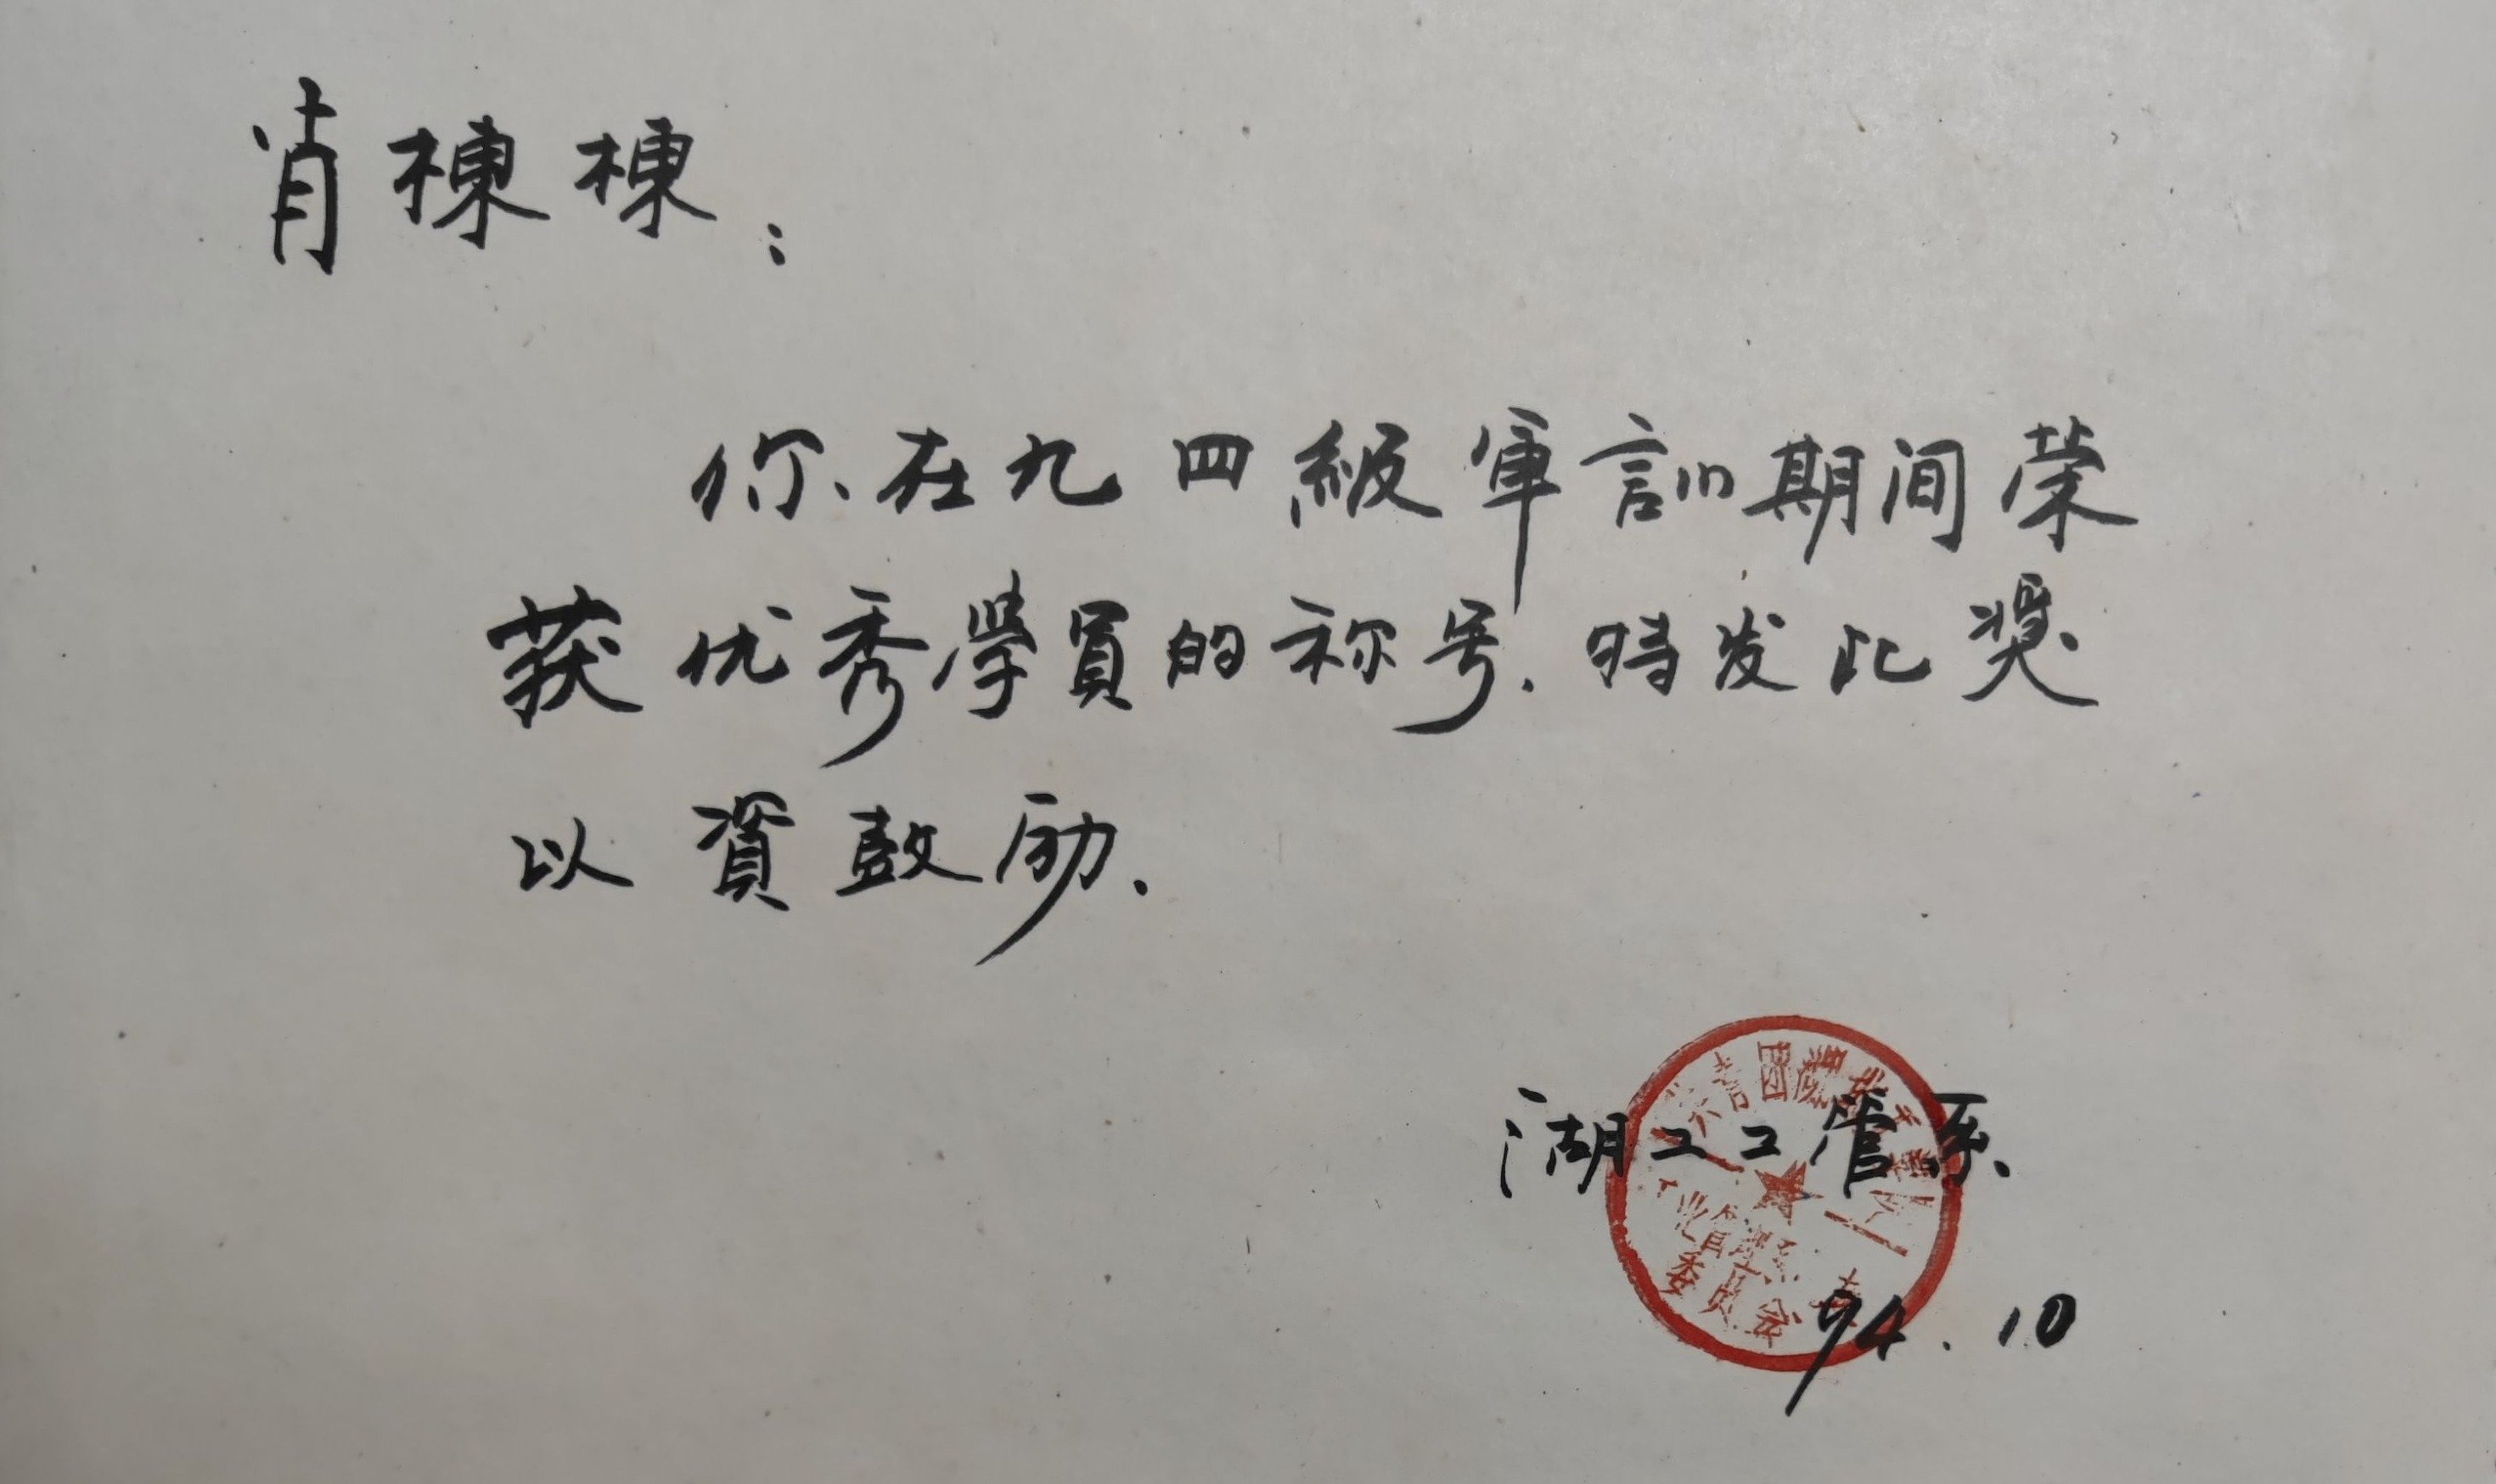 肖棟棟：
你在九四級軍訓期间荣
获优秀學員的称号.特发此奖
以資鼓励.
湖工工管系
94.10
委員会